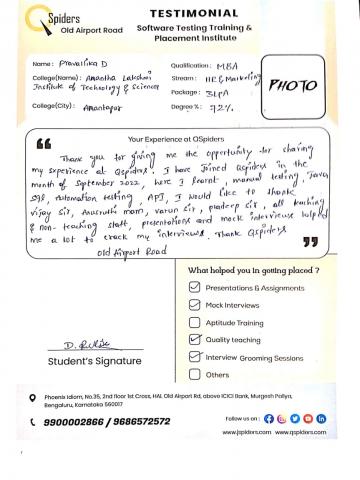 QSpiders
Old Airport Road
TESTIMONIAL
Software Testing Training &
Placement Institute
Name : Pravallika D
College(Name) : Anantha Lakshmi
Institute of Technology & Sciences
College(City) : Anantapur
Qualification : MBA
Stream : HR & Marketing
Package : 3LPA
Degree % : 72%
PHOTO
Your Experience at QSpiders
Thank you for giving me the opportunity for sharing
my experience at Qspiders. I have Joined Qspiders in the
month of September 2022, here I learnt manual testing, Java,
SQL, Automation testing, API, I would like to thank
vijay Sir, Anusruthi mam, varun sir, pradeep sir, all teaching
& non-teaching staff, presentations and mock interviews helped
me a lot to crack my interviews. Thank Qspiders
Old Airport Road
What helped you in getting placed ?
Presentations & Assignments
Mock Interviews
Aptitude Training
Quality teaching
Interview Grooming Sessions
Others
Student's Signature
Phoenix Idiom, No.35, 2nd floor 1st Cross, HAL Old Airport Rd, above ICICI Bank, Murgesh Pallya,
Bengaluru, Karnataka 560017
9900002866 / 9686572572
Follow us on :
www.jspiders.com www.qspiders.com